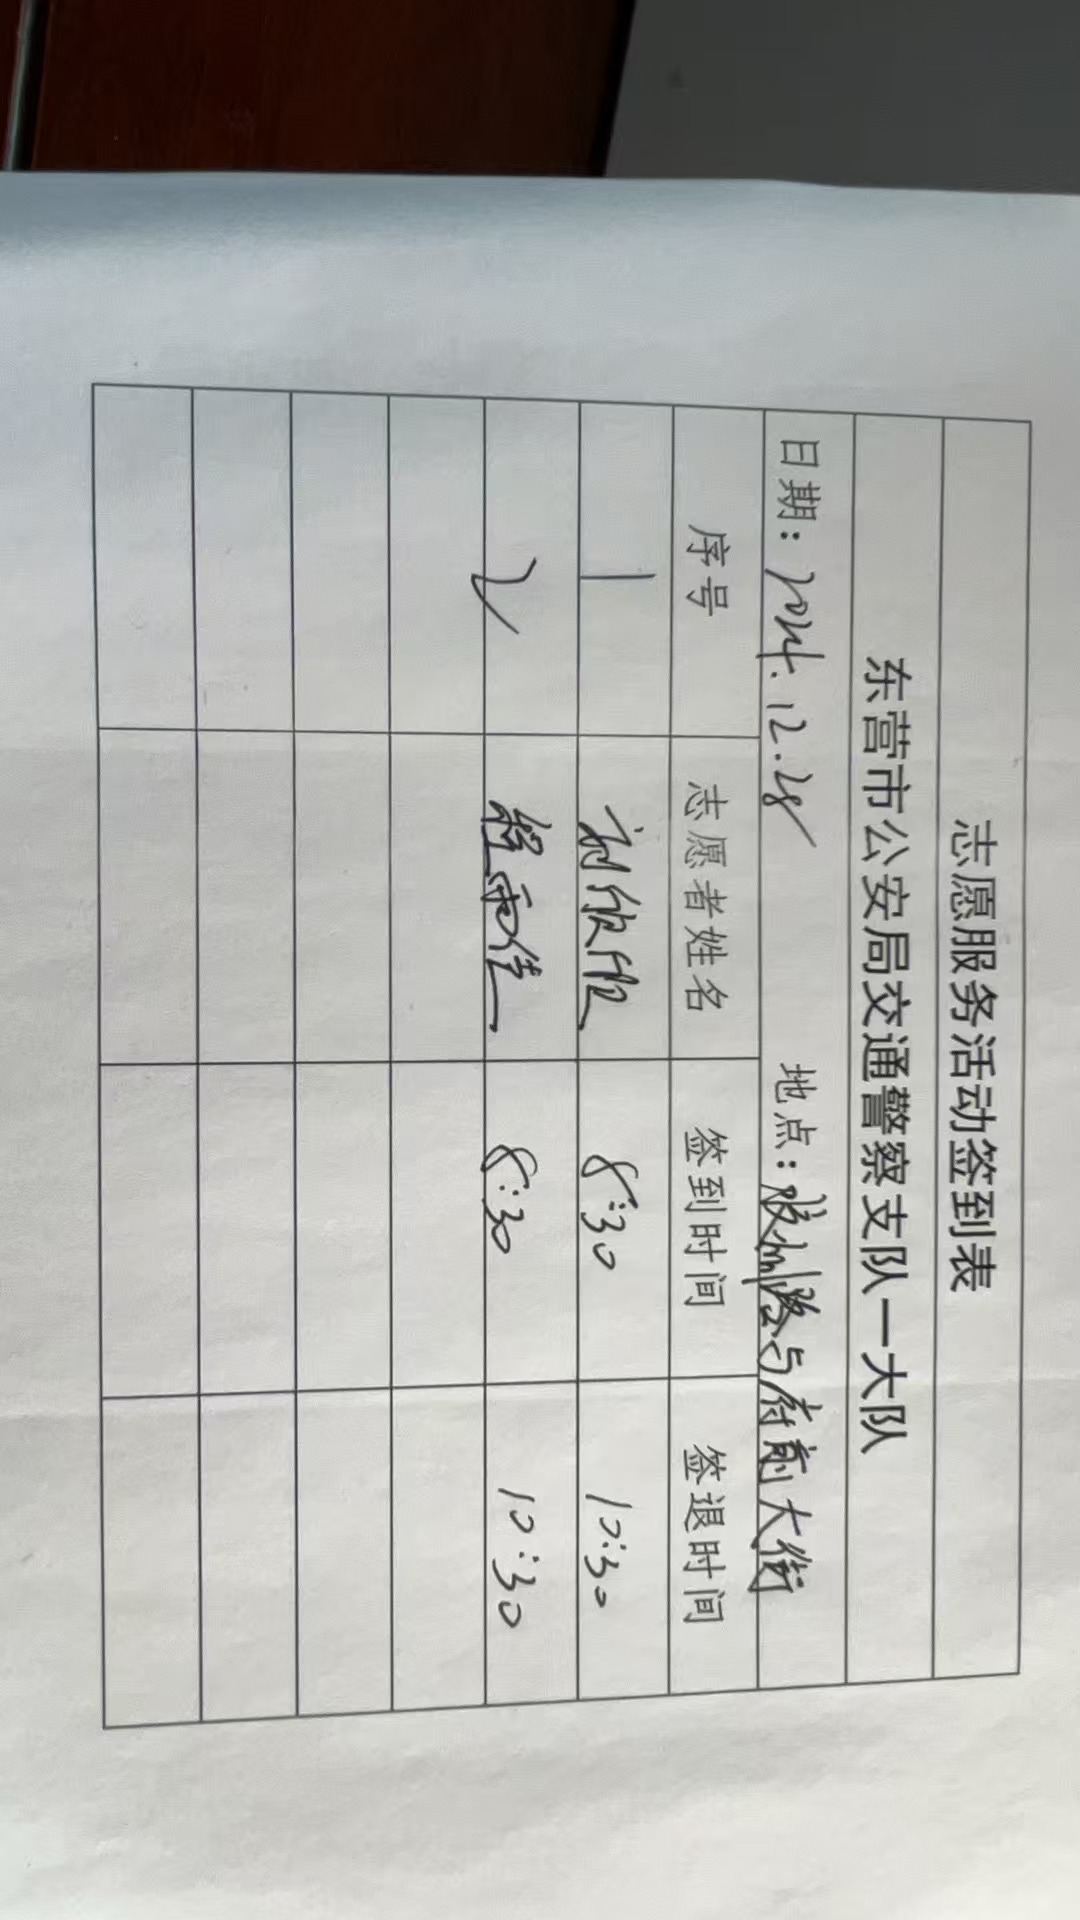 志愿服务活动签到表
东营市公安局交通警察支队一大队
日期：2024.12.28 地点：胶州路与府前大街
序号 志愿者姓名 签到时间 签退时间
1 8:30 10:30
2 程雨佳 8:30 10:30